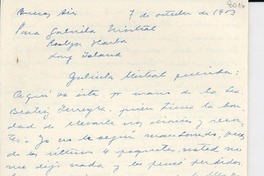 Buenos Aires 7 de octubre de 1953
Para Gabriela Mistral
Roslyn Harbor
Long Island
Gabriela Mistral querida:
Aquí va ésta por mano de la Sra
Beatriz Ferreyra, quien tiene la bon-
dad de llevarle sus diarios y recor-
tes. Yo los seguí mandando, pero
de los últimos 4 paquetes, usted no
me dijo nada y los pensé perdidos.